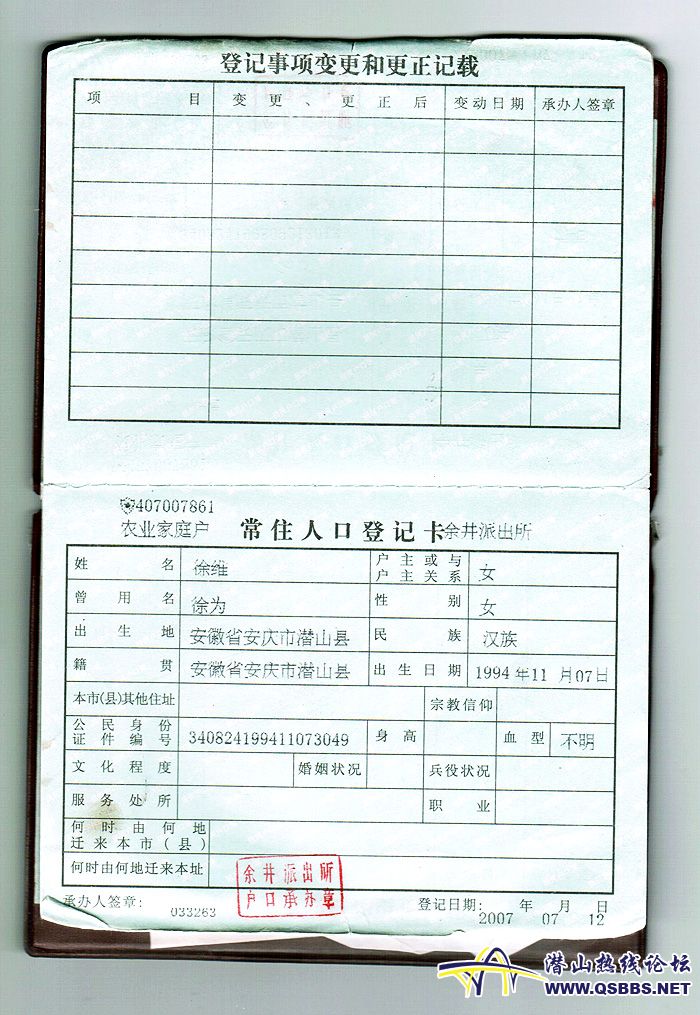 登记事项变更和更正记载
项 目 变 更 、 更 正 后 变动日期 承办人签章
407007861
农业家庭户 常住人口登记卡 余井派出所
姓 名 徐维 户主或与户主关系 女
曾用名 徐为 性 别 女
出生地 安徽省安庆市潜山县 民 族 汉族
籍 贯 安徽省安庆市潜山县 出生日期 1994年11月07日
本市(县)其他住址 宗教信仰
公民身份证件编号 340824199411073049 身高 血型 不明
文化程度 婚姻状况 兵役状况
服务处所 职 业
何时由何地迁来本市(县)
何时由何地迁来本址
余井派出所
户口承办章
承办人签章: 033263 登记日期: 年 月 日
2007 07 12
潜山热线论坛
WWW.QSBBS.NET